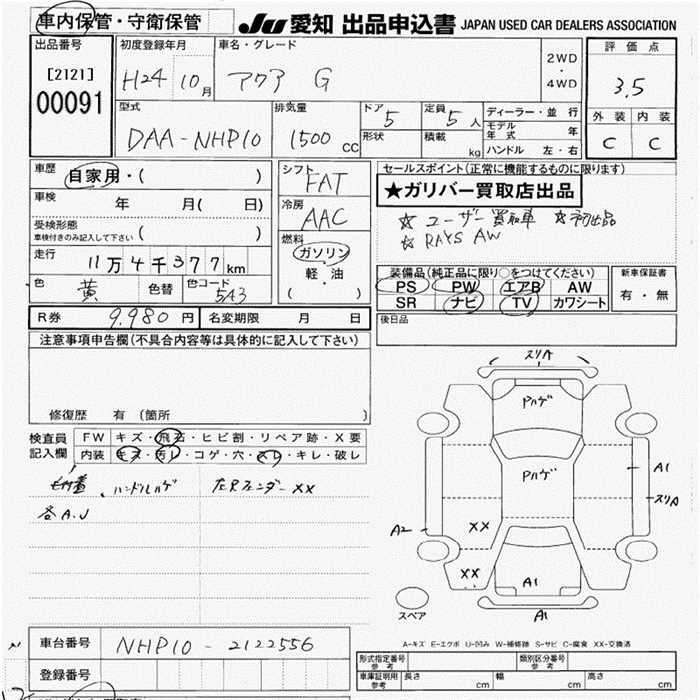 車内保管・守衛保管 JU 愛知 出品申込書 JAPAN USED CAR DEALERS ASSOCIATION
出品番号 初度登録年月 車名・グレード 評価点
[2121] H24 10月 アクア G 2WD・4WD 3.5
00091
型式 排気量 ドア 定員 ディーラー・並行 外装 内装
DAA-NHP10 1500cc 5 5人 モデル年式 年 C C
形状 積載 kg ハンドル 左・右
車歴 自家用・( ) シフト FAT セールスポイント(正常に機能するものに限ります)
車検 年 月( 日) 冷房 AAC ★ガリバー買取店出品
受検形態 ( ) ☆ ユーザー買取車 ☆初出品
車検付きのみ記入して下さい ☆ RAYS AW
走行 11万4千377km 燃料 ガソリン・軽・油 ( )
装備品(純正品に限り○をつけてください) 新車保証書
色 黄 色替 色コード 5A3 PS PW エアB AW 有・無
SR ナビ TV カワシート
R券 9.980円 名変期限 月 日 後日品
注意事項申告欄(不具合内容等は具体的に記入して下さい)
修復歴 有 (箇所 )
検査員記入欄 FW キズ・飛石・ヒビ割・リペア跡・X要
内装 キズ・汚レ・コゲ・穴・スレ・キレ・破レ
ハンドルハゲ 左Rフェンダーxx
各A.U
スリA
Pハゲ
Pハゲ
A1
スリA
A2
XX
XX
A1
A1
スペア
A-キズ E-エクボ U-凹み W-補修跡 S-サビ C-腐食 XX-交換済
車台番号 NHP10-2122556
登録番号
形式指定番号 参考 類別区分番号 参考
車庫証明用 参考 長さ cm 幅 cm 高さ cm